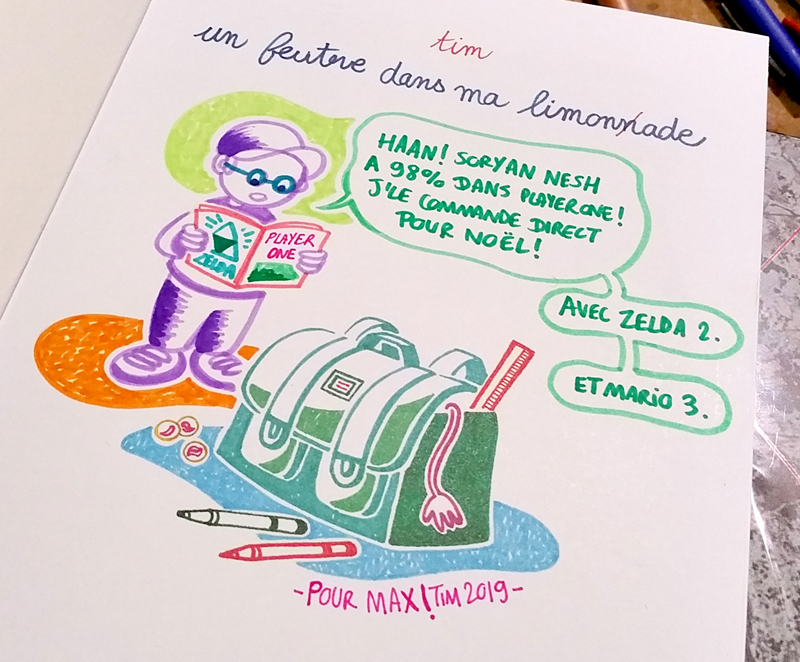 tim
un feutre dans ma limonnade
HAAN! SORYAN NESH
A 98% DANS PLAYERONE!
J'LE COMMANDE DIRECT
POUR NOËL!
ZELDA
PLAYER
ONE
AVEC ZELDA 2.
ET MARIO 3.
-POUR MAX! TIM 2019-